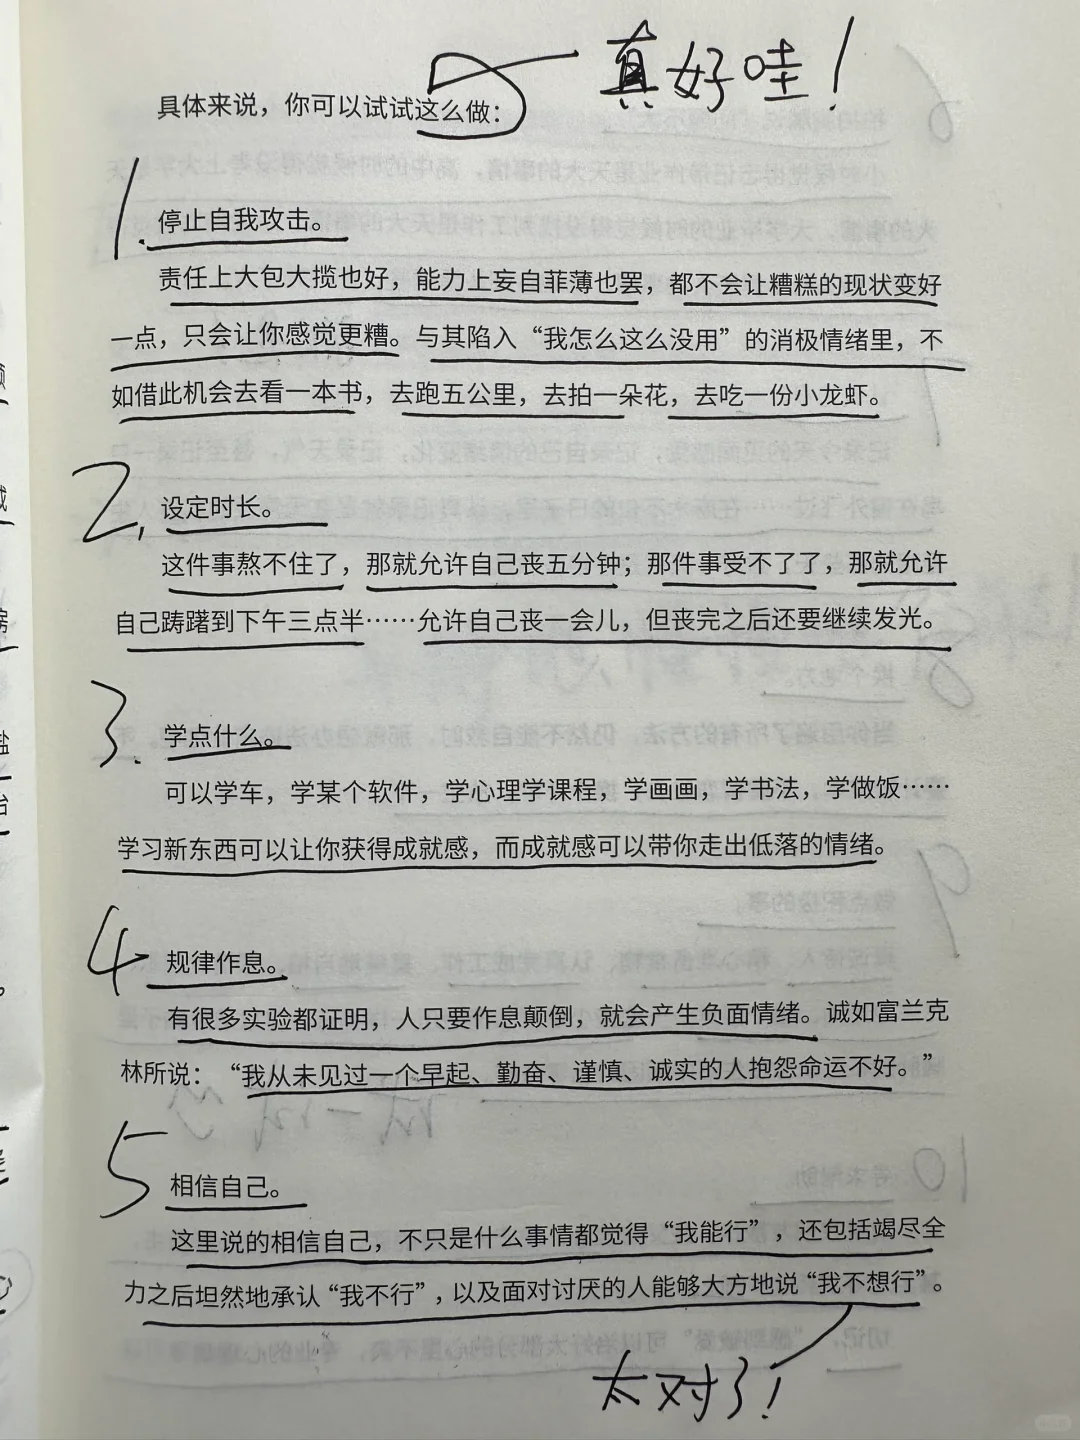 真好哇！
具体来说，你可以试试这么做：
1.
停止自我攻击。
责任上大包大揽也好，能力上妄自菲薄也罢，都不会让糟糕的现状变好
一点，只会让你感觉更糟。与其陷入“我怎么这么没用”的消极情绪里，不
如借此机会去看一本书，去跑五公里，去拍一朵花，去吃一份小龙虾。
2.
设定时长。
这件事熬不住了，那就允许自己丧五分钟；那件事受不了了，那就允许
自己踌躇到下午三点半……允许自己丧一会儿，但丧完之后还要继续发光。
3.
学点什么。
可以学车，学某个软件，学心理学课程，学画画，学书法，学做饭……
学习新东西可以让你获得成就感，而成就感可以带你走出低落的情绪。
4
规律作息。
有很多实验都证明，人只要作息颠倒，就会产生负面情绪。诚如富兰克
林所说：“我从未见过一个早起、勤奋、谨慎、诚实的人抱怨命运不好。”
5
相信自己。
这里说的相信自己，不只是什么事情都觉得“我能行”，还包括竭尽全
力之后坦然地承认“我不行”，以及面对讨厌的人能够大方地说“我不想行”。
太对了！